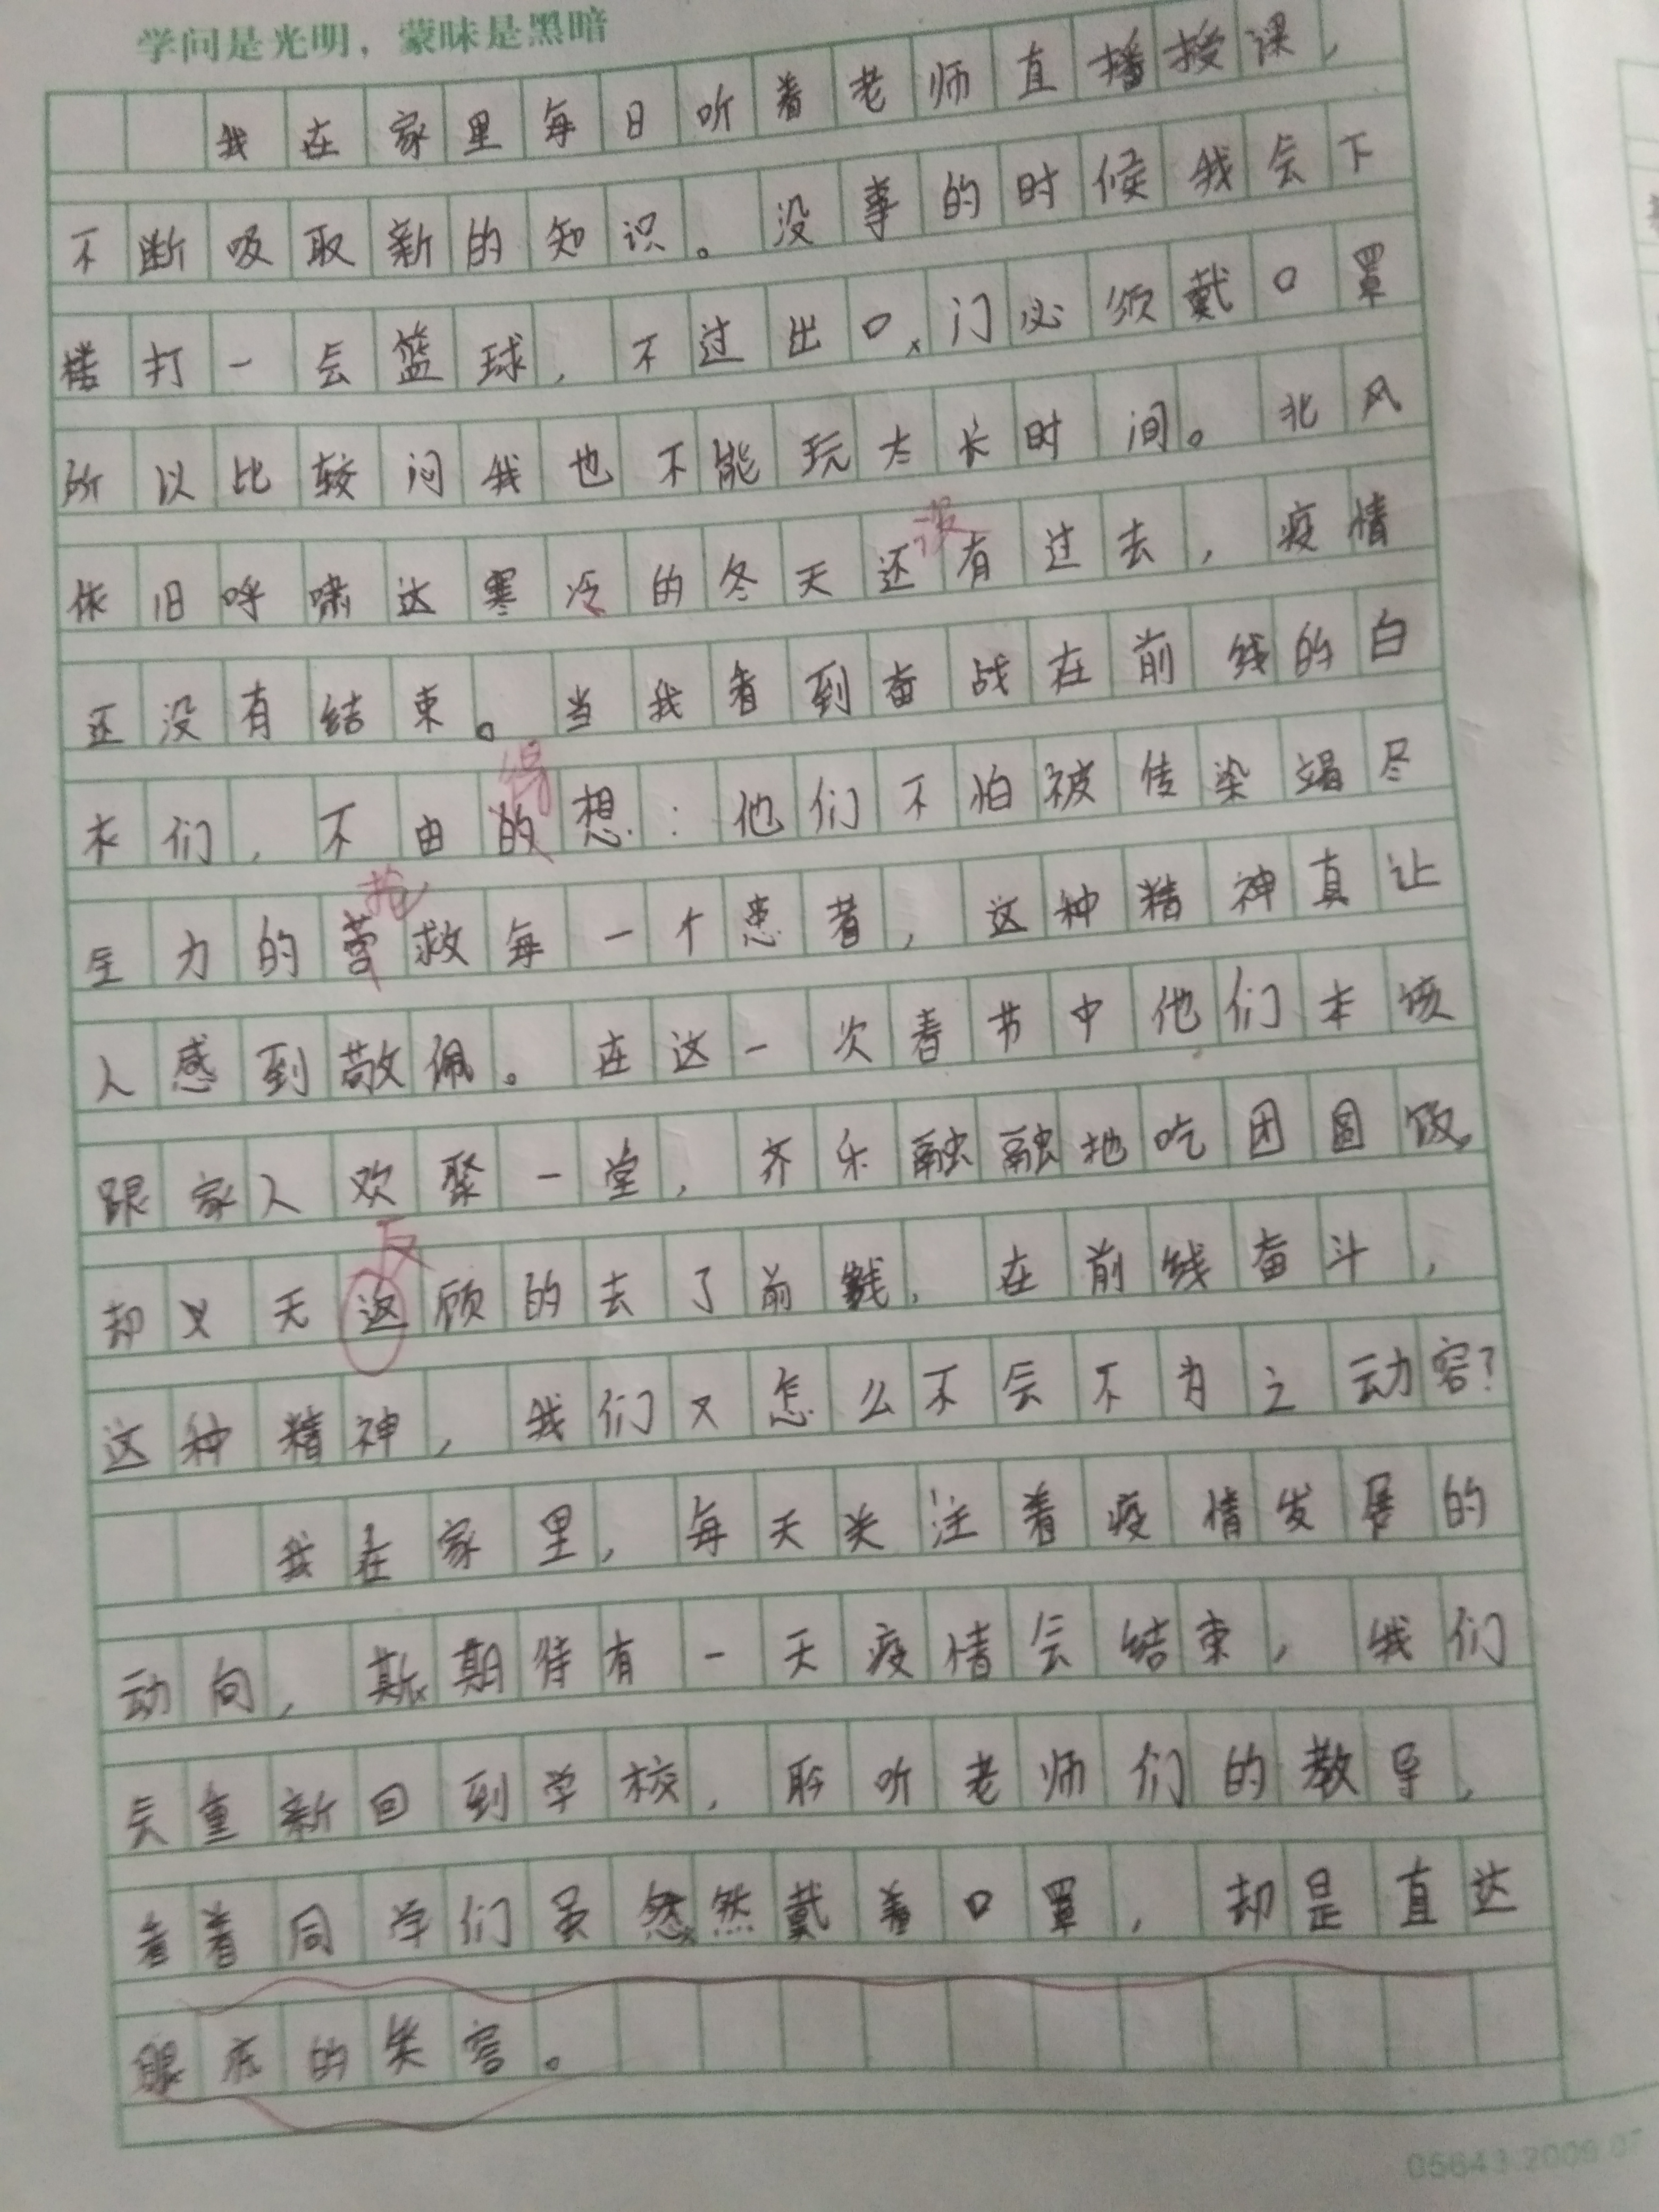 学问是光明，蒙昧是黑暗
我在家里每日听着老师直播授课，
不断吸取新的知识。没事的时候我会下
楼打一会篮球，不过出口门必须戴口罩
所以比较闷我也不能玩太长时间。北风
没
依旧呼啸这寒冷的冬天还有过去，疫情
还没有结束。当我看到奋战在前线的白
得
衣们，不由的想：他们不怕被传染竭尽
抢
全力的营救每一个患者，这种精神真让
人感到敬佩。在这一次春节中他们本该
跟家人欢聚一堂，齐乐融融地吃团圆饭，
反
却义无返顾的去了前线，在前线奋斗，
这种精神，我们又怎么不会不为之动容？
我在家里，每天关注着疫情发展的
动向，期待有一天疫情会结束，我们
会重新回到学校，聆听老师们的教导，
看着同学们虽然戴着口罩，却是直达
眼底的笑容。
05643.2009.07